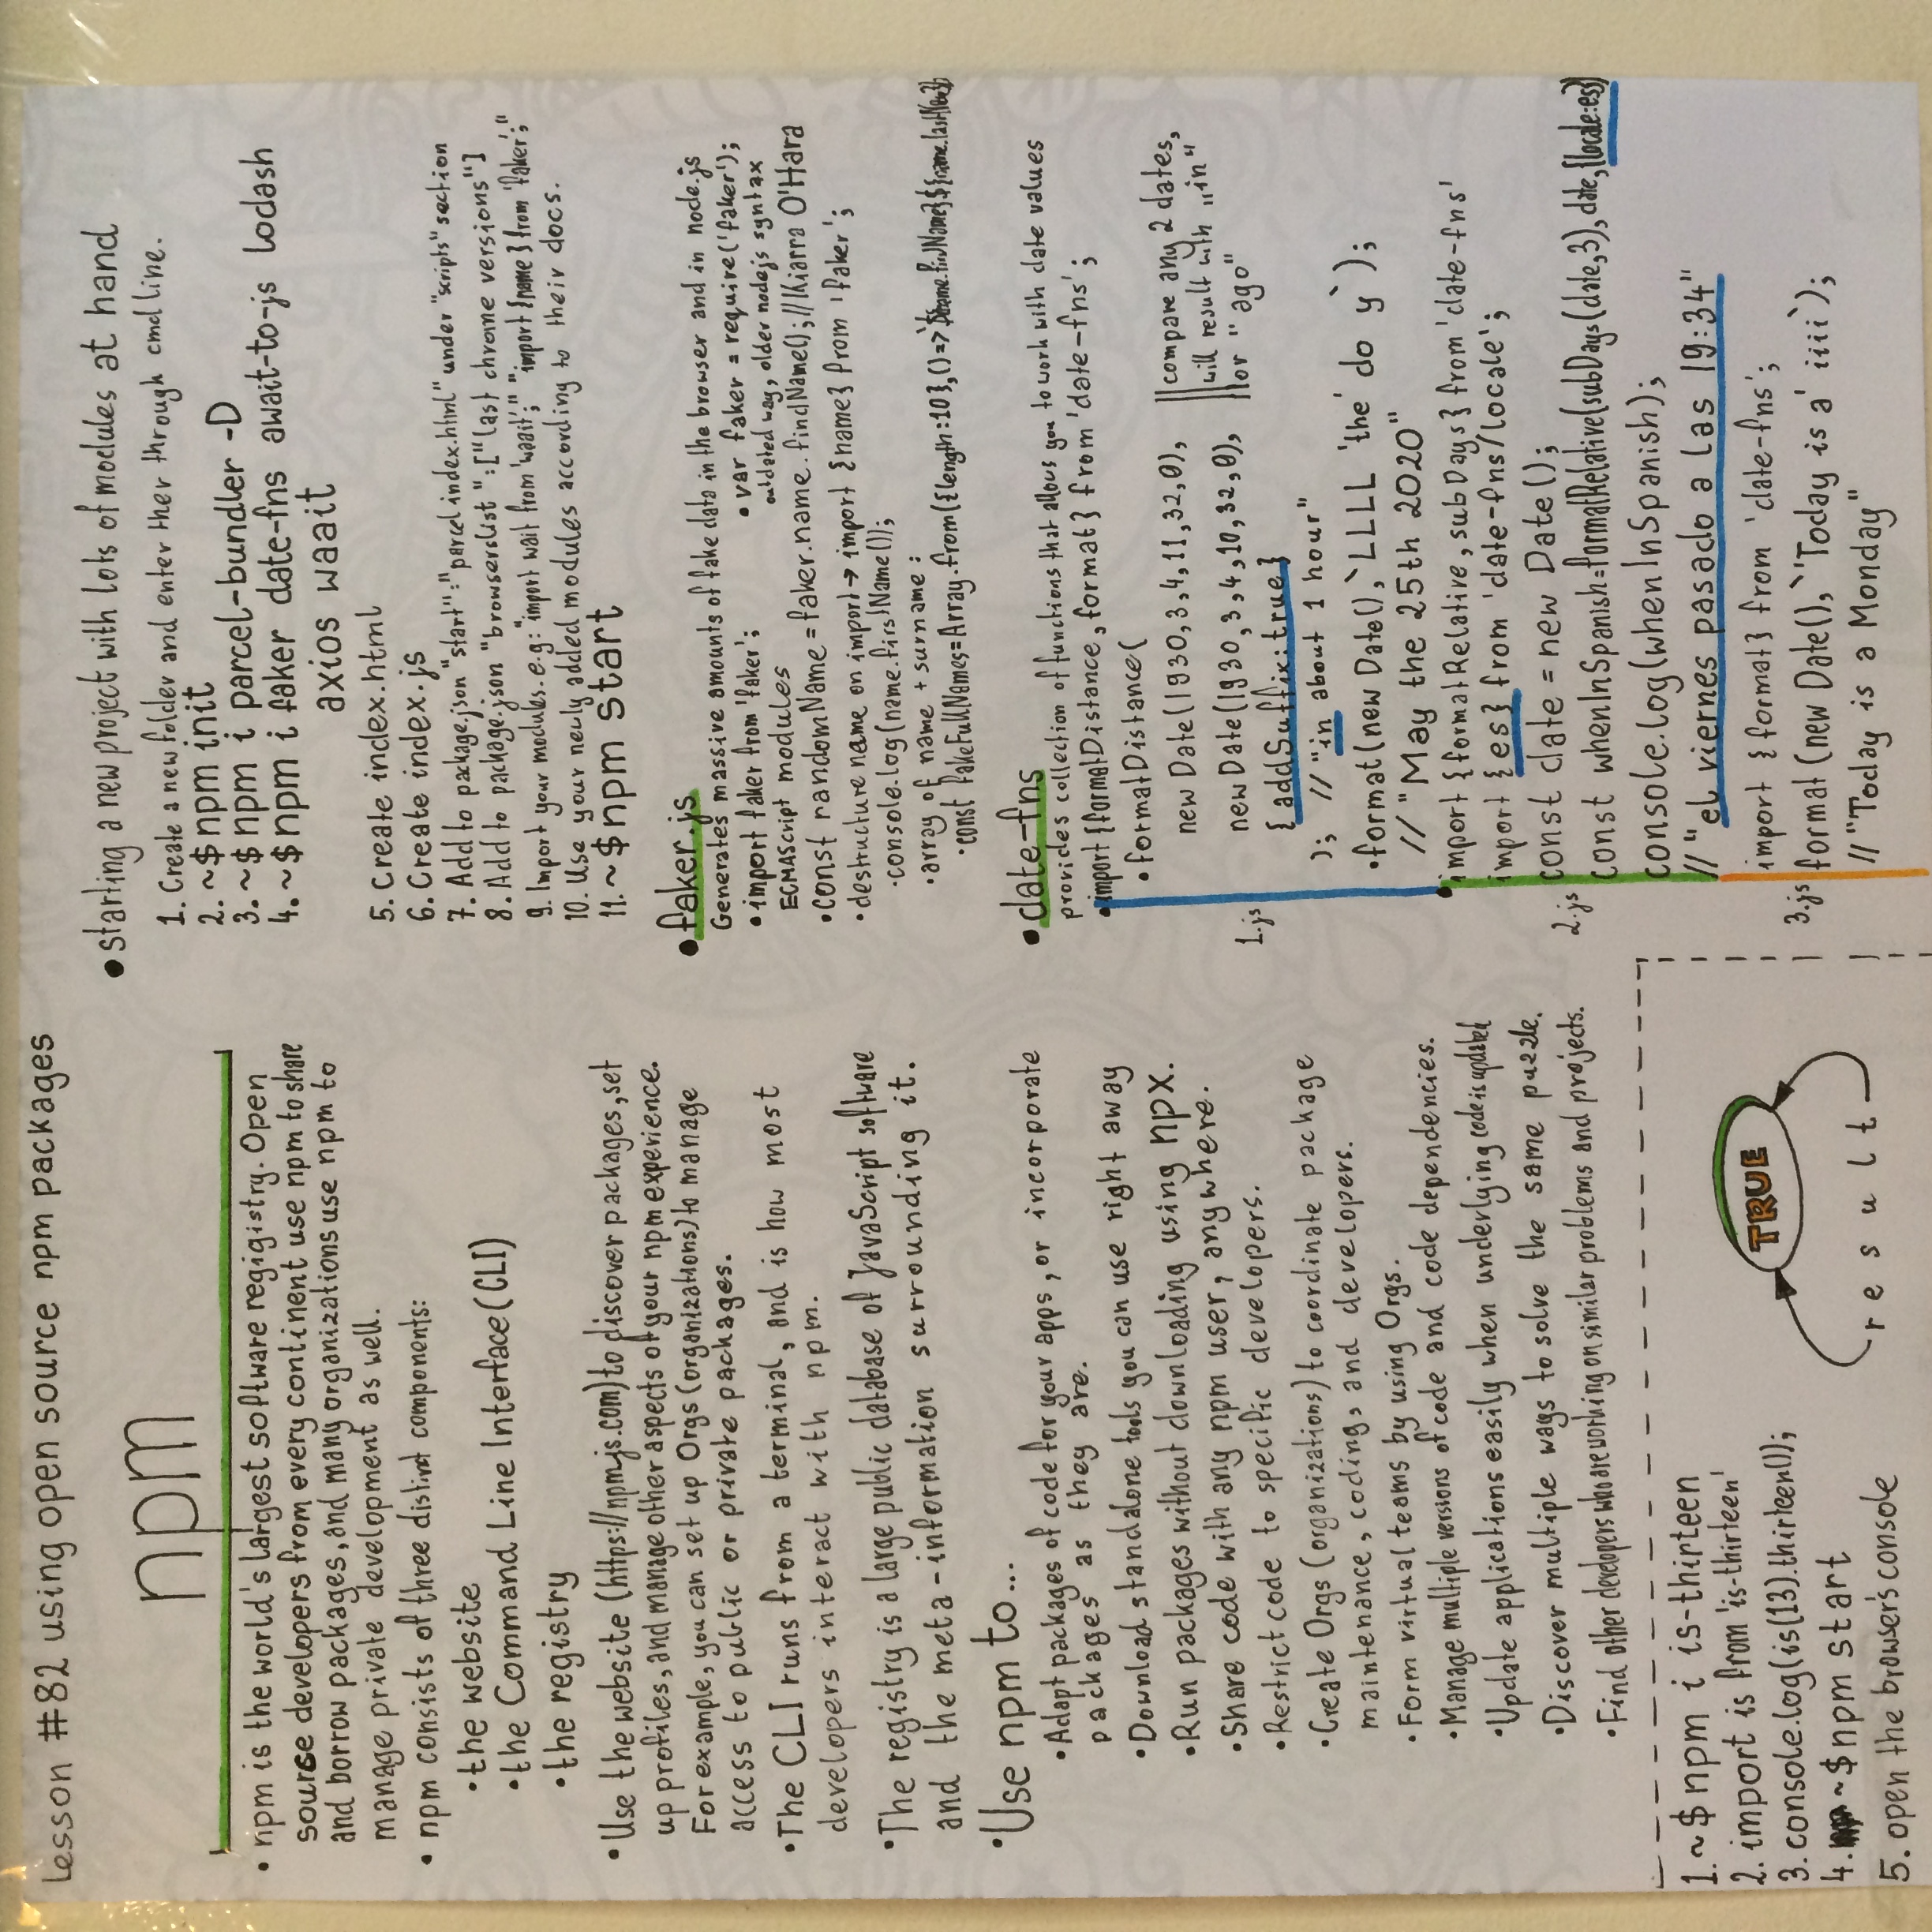 Lesson #82 using open source npm packages
npm
• npm is the world's largest software regigistry. Open
source developers from every continent use npm to share
and borrow packages, and many organizations use npm to
manage private development as well.
• npm consists of three distinct components:
• the website
• the Command Line Interface (CLI)
• the registry
• Use the website (https://npmjs.com) to discover packages, set
up profiles, and manage other aspects of your npm experience.
For example, you can set up Orgs (organizations) to manage
access to public or private packages.
• The CLI runs from a terminal, and is how most
developers interact with npm.
• The registry is a large public database of JavaScript software
and the meta-information surrounding it.
• Use npm to...
• Adapt packages of code for your apps, or incorporate
packages as they are.
• Download standalone tools you can use right away
• Run packages without downloading using npx.
• Share code with any npm user, anywhere.
• Restrict code to specific developers.
• Create Orgs (organizations) to coordinate package
maintenance, coding, and developers.
• Form virtual teams by using Orgs.
• Manage multiple versions of code and code dependencies.
• Update applications easily when underlying code is updated
• Discover multiple ways to solve the same puzzle.
• Find other developers who are working on similar problems and projects.
1. ~$ npm i is-thirteen
2. import is from 'is-thirteen'
3. console.log(is(13).thirteen());
4. ~$ npm start
5. open the browser's console
TRUE
result
• starting a new project with lots of modules at hand
1. Create a new folder and enter ther through cmd line.
2. ~$ npm init
3. ~$ npm i parcel-bundler -D
4. ~$ npm i faker date-fns await-to-js lodash
axios waait
5. Create index.html
6. Create index.js
7. Add to package.json "start":"parcel index.html" under "scripts" section
8. Add to package.json "browserslist":["last chrome versions"]
9. Import your modules. e.g: "import wait from 'waait';" "import {name} from 'faker';"
10. Use your newly added modules according to their docs.
11. ~$ npm start
• faker.js
Generates massive amounts of fake data in the browser and in node.js
• import faker from 'faker'; • var faker = require('faker');
ECMAScript modules outdated way, older nodejs syntax
• const randomName = faker.name.findName(); // Kiarra O'Hara
• destructure name on import → import {name} from 'faker';
• console.log(name.firstName());
• array of name + surname:
• const fakeFullNames=Array.from({length:10},()=>`${name.firstName}${name.last
• date-fns
provides collection of functions that allows you to work with date values
• import {formatDistance, format} from 'date-fns';
• formatDistance(
new Date(1930,3,4,11,32,0), || compare any 2 dates,
will result with „in"
new Date(1930,3,4,10,32,0), or "ago"
1.js
{addSuffix:true}
); // "in about 1 hour"
• format(new Date(),`LLLL 'the' do y`);
// "May the 25th 2020"
import {formatRelative, subDays} from 'date-fns'
import {es} from 'date-fns/locale';
const date = new Date();
2.js
const whenInSpanish=formatRelative(subDays(date,3),date,{locale:es})
console.log(whenInSpanish);
// "el viernes pasado a las 19:34"
import {format} from 'date-fns';
3.js
format (new Date(),`'Today is a' iiii`);
// "Today is a Monday"